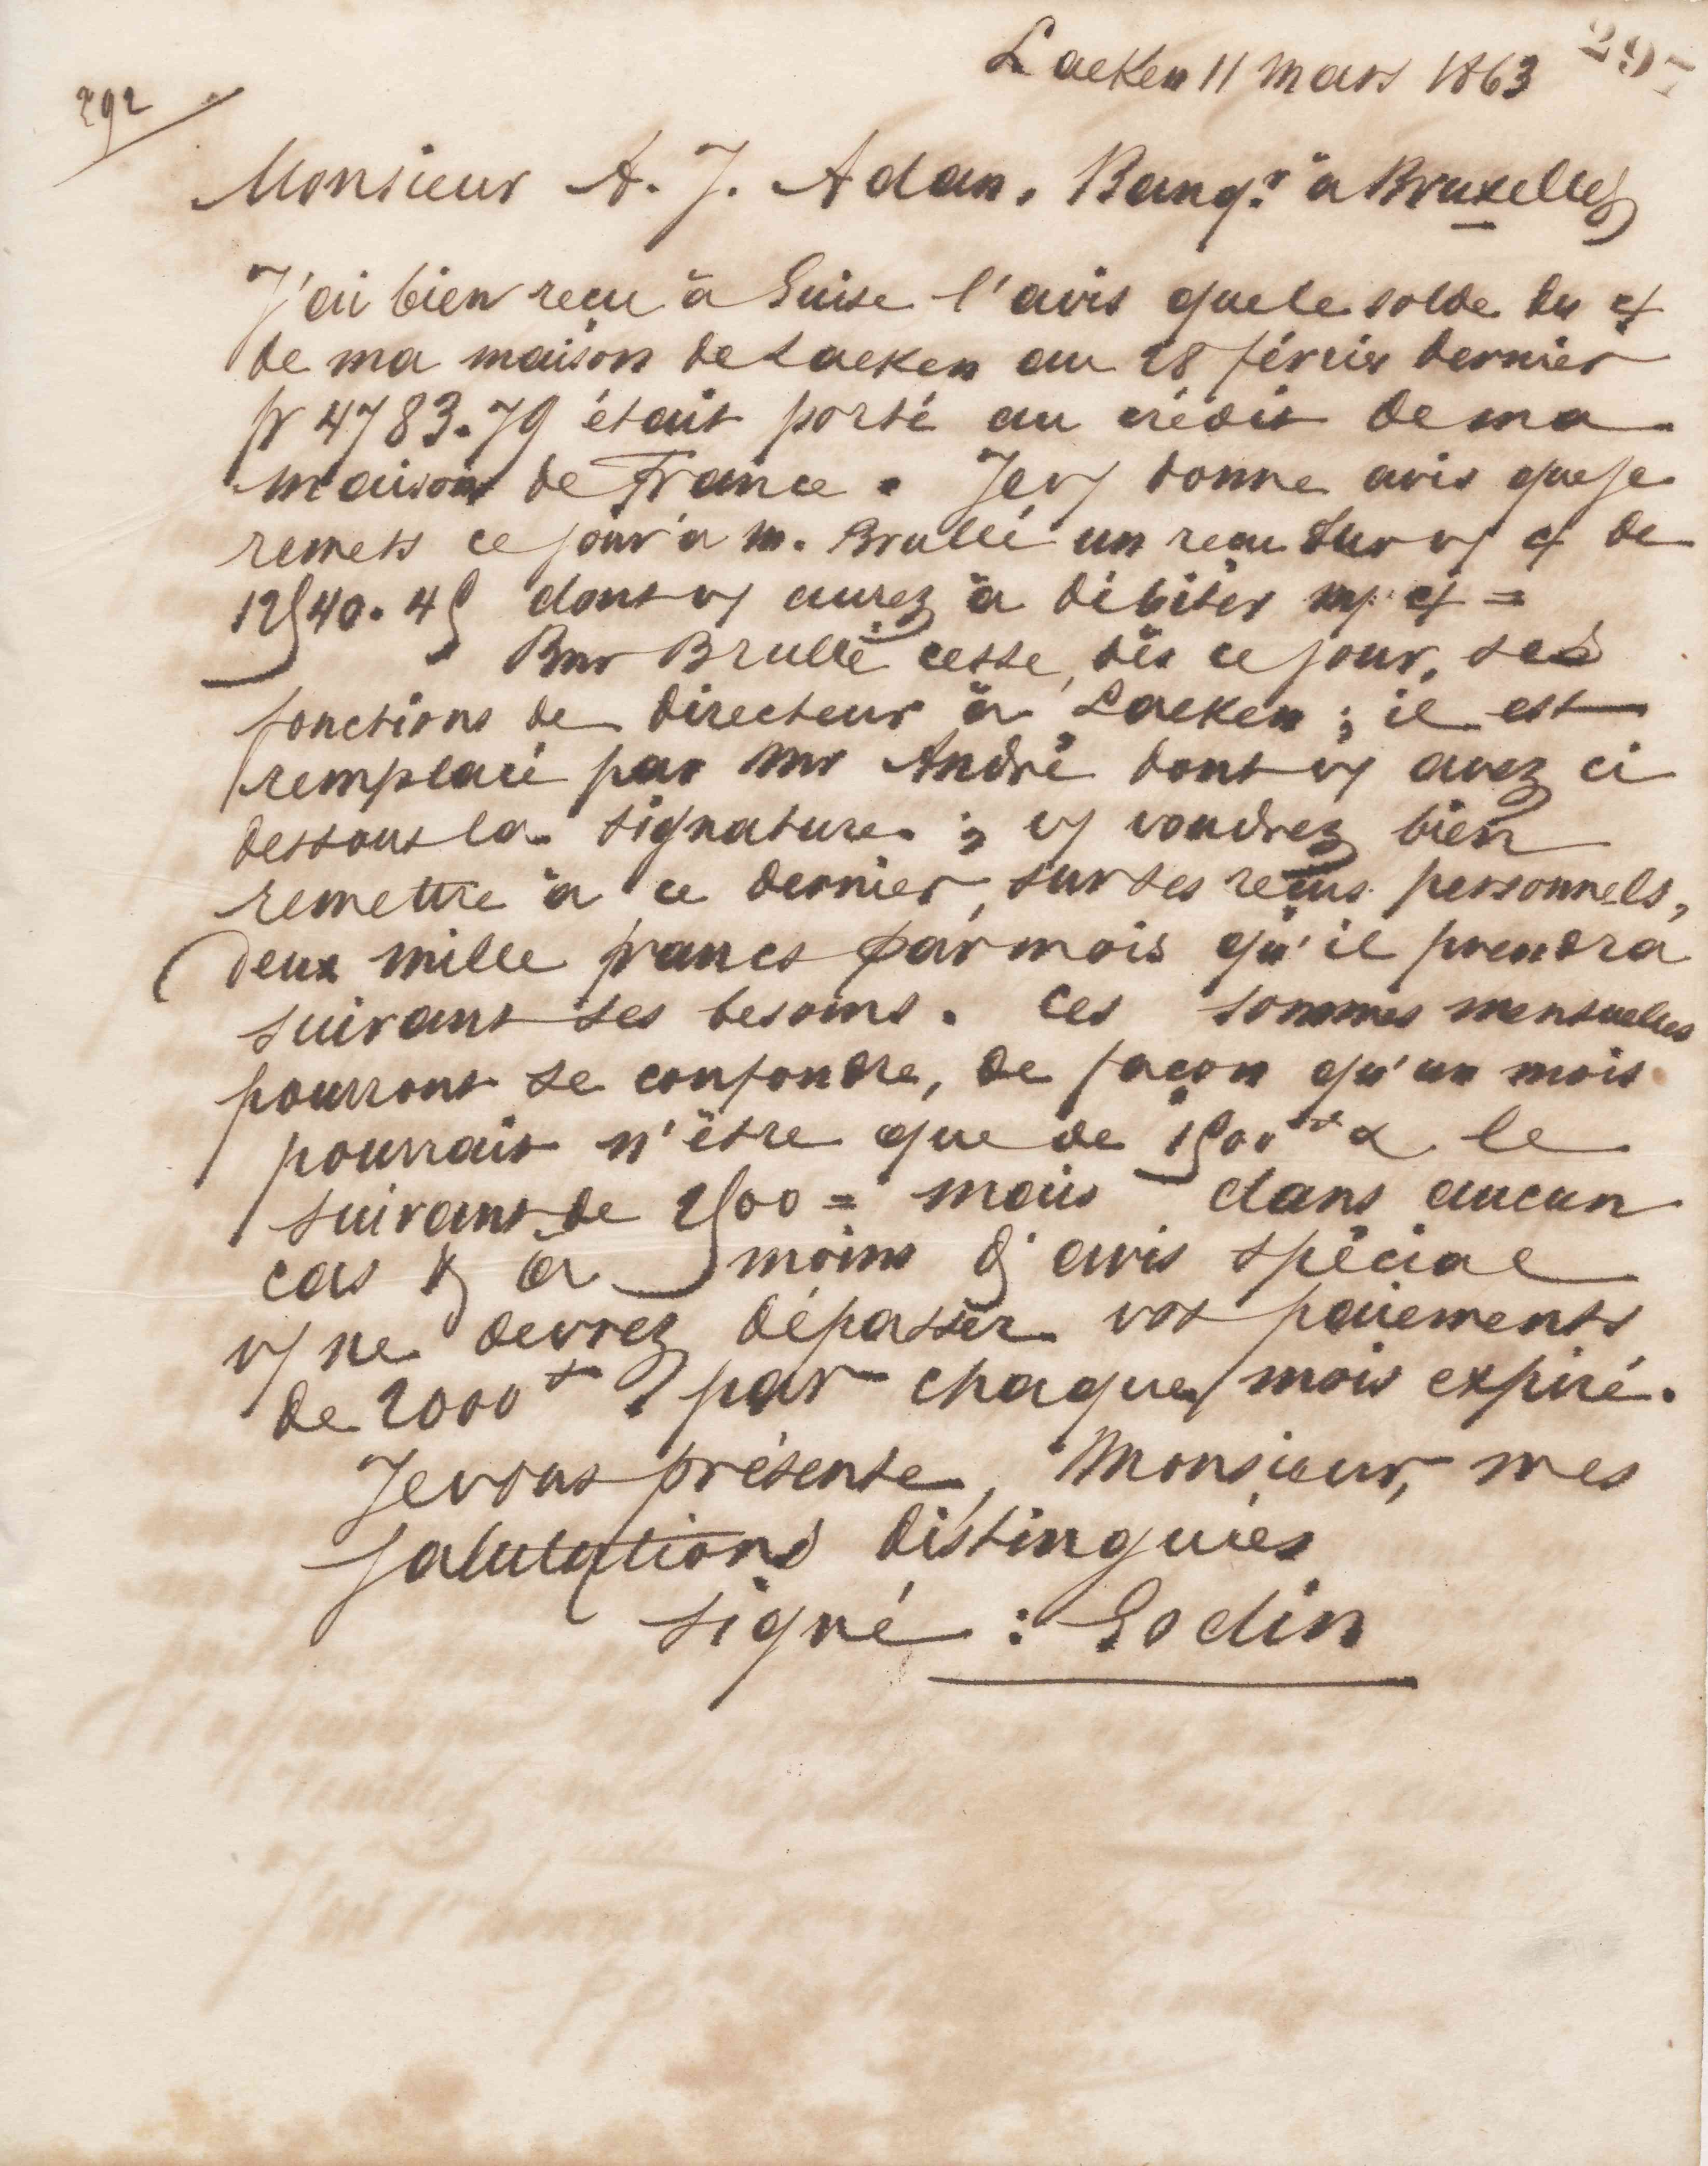 Laeken 11 mars 1863
297
292
Monsieur A. J. Adan, Banqr à Bruxelles
J'ai bien reçu à Guise l'avis que le solde du ct
de ma maison de Laeken au 28 février dernier
fr 4783.79 était porté au crédit de ma
maison de France. Je v/ donne avis que je
remets ce jour à M. Brullé un reçu sur v/ ct de
12540.45 dont v/ aurez à débiter m/ ct =
Mr Brullé cesse, dès ce jour, ses
fonctions de directeur à Laeken ; il est
remplacé par Mr André dont v/ avez ci
dessous la signature ; v/ voudrez bien
remettre à ce dernier, sur ses reçus personnels,
deux mille francs par mois qu'il prendra
suivant ses besoins. Ces sommes mensuelles
pourront se confondre, de façon qu'un mois
pourrait n'être que de 1500 & le
suivant de 2500 = mais dans aucun
cas & à moins d'avis spécial
v/ ne devrez dépasser vos paiements
de 2000 par chaque mois expiré.
Je vous présente, Monsieur, mes
salutations distinguées
signé : Godin